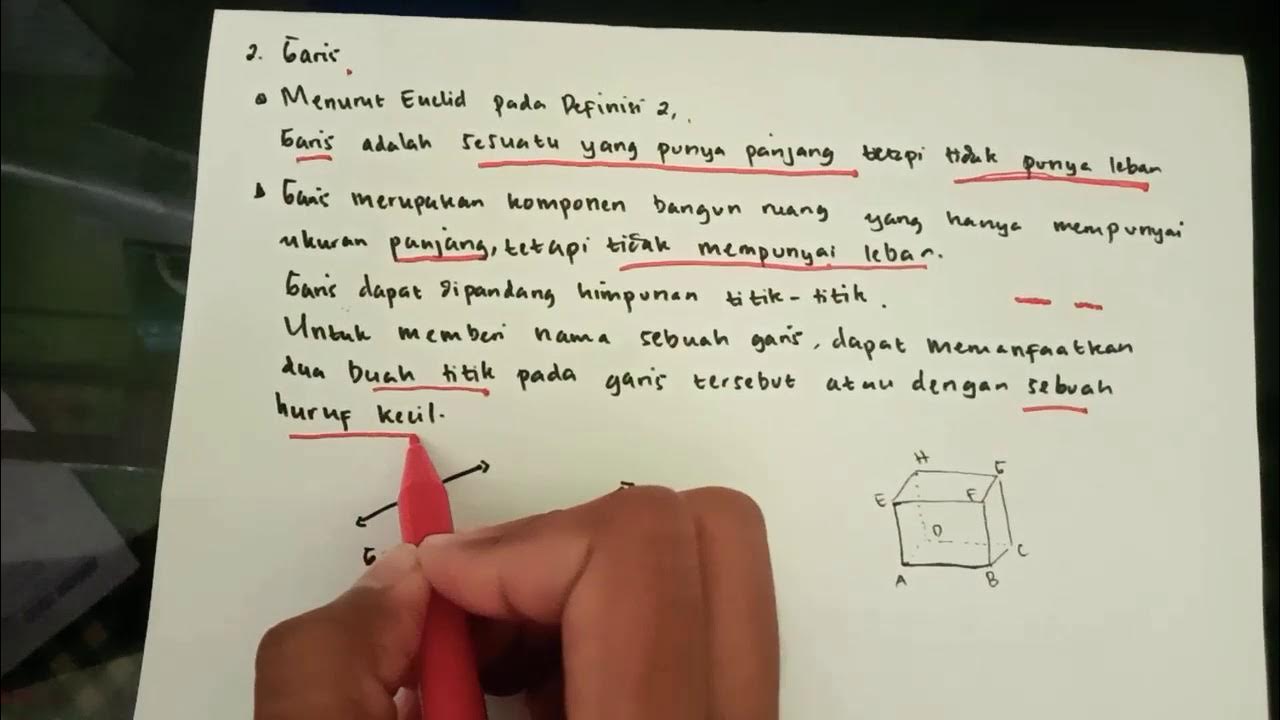 2. Garis
Menurut Euclid pada Definisi 2,
Garis adalah sesuatu yang punya panjang tetapi tidak punya lebar
Garis merupakan komponen bangun ruang yang hanya mempunyai
ukuran panjang, tetapi tidak mempunyai lebar.
Garis dapat dipandang himpunan titik-titik.
Untuk memberi nama sebuah garis, dapat memanfaatkan
dua buah titik pada garis tersebut atau dengan sebuah
huruf kecil.
H G
E F
D
C
A B